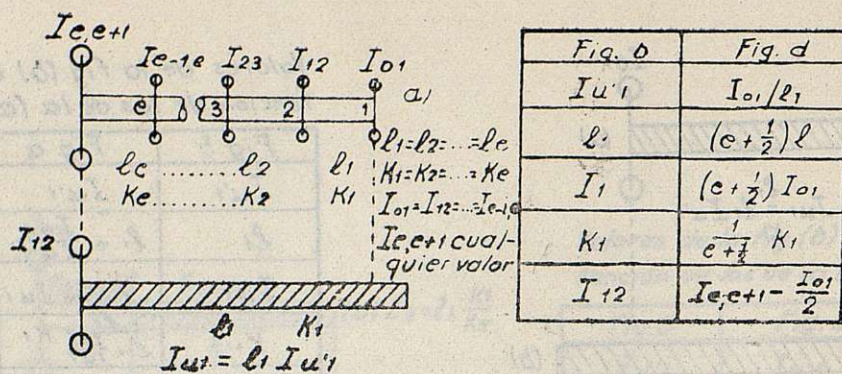 Ie,e+1
Ie-1,e I23 I12 I01
e 3 2 1 a)
le ........ l2 l1
Ke ....... K2 K1
l1=l2=...=le
K1=K2=...=Ke
I01=I12=...=Ie-1,e
Ie,e+1 cual-
quier valor
I12
l1 K1
Iu1 = l1 Iu'1
Fig. b Fig. d
Iu'1 I01/l1
l1 (e+1/2)l
I1 (e+1/2) I01
K1 1/(e+1/2) K1
I12 Ie,e+1 - I01/2